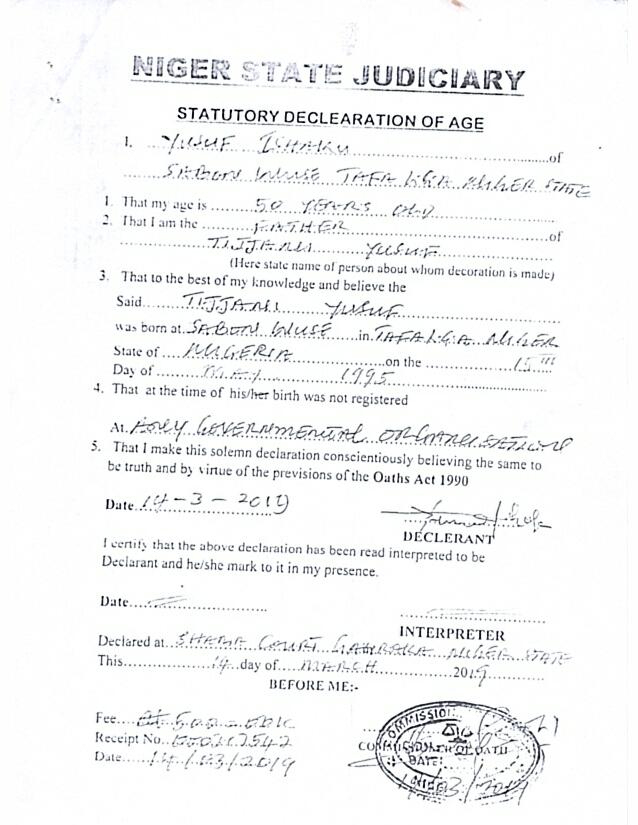 NIGER STATE JUDICIARY
STATUTORY DECLEARATION OF AGE
1. YUSUF ISHAKU of
SABON WUSE TAFA LGA NIGER STATE
1. That my age is 50 YEARS OLD
2. That I am the FATHER of
TIJJANI YUSUF
(Here state name of person about whom decoration is made)
3. That to the best of my knowledge and believe the
Said TIJJANI YUSUF
was born at SABON WUSE in TAFA LGA NIGER
State of NIGERIA on the 15TH
Day of MAY 1995
4. That at the time of his/her birth was not registered
At ANY GOVERNMENTAL
5. That I make this solemn declaration conscientiously believing the same to
be truth and by virtue of the previsions of the Oaths Act 1990
Date 14-3-2019
DECLERANT
I certify that the above declaration has been read interpreted to be
Declarant and he/she mark to it in my presence.
Date
INTERPRETER
Declared at COURT NIGER STATE
This 14 day of MARCH 2019
BEFORE ME:-
Fee
Receipt No.
Date 14/03/2019
COMMISSIONER OF OATH
DATE: